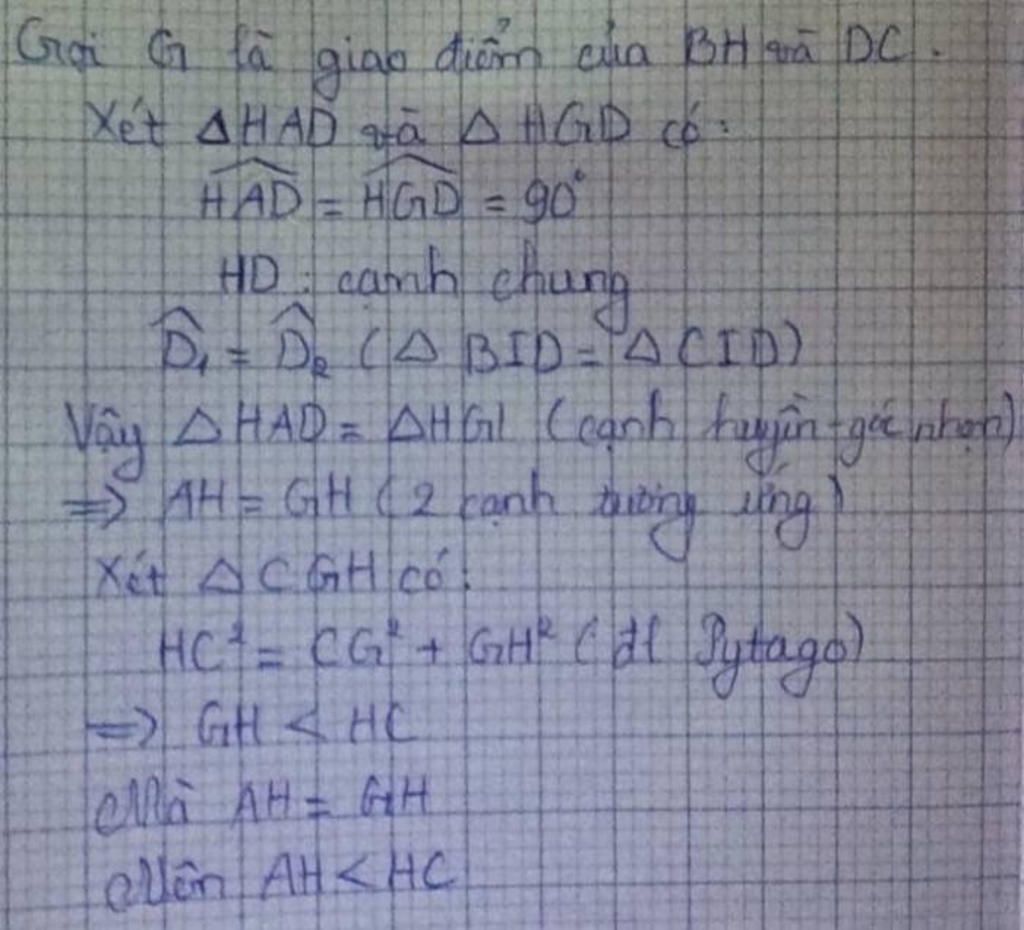 Gọi G là giao điểm của BH và DC.
Xét △HAD và △HGD có:
HAD = HGD = 90°
HD: cạnh chung
D̂₁ = D̂₂ (△BID = △CID)
Vậy △HAD = △HGI (cạnh huyền-góc nhọn)
=> AH = GH (2 cạnh tương ứng)
Xét △CGH có:
HC² = CG² + GH² (đl Pytago)
=> GH < HC
Mà AH = GH
Nên AH < HC